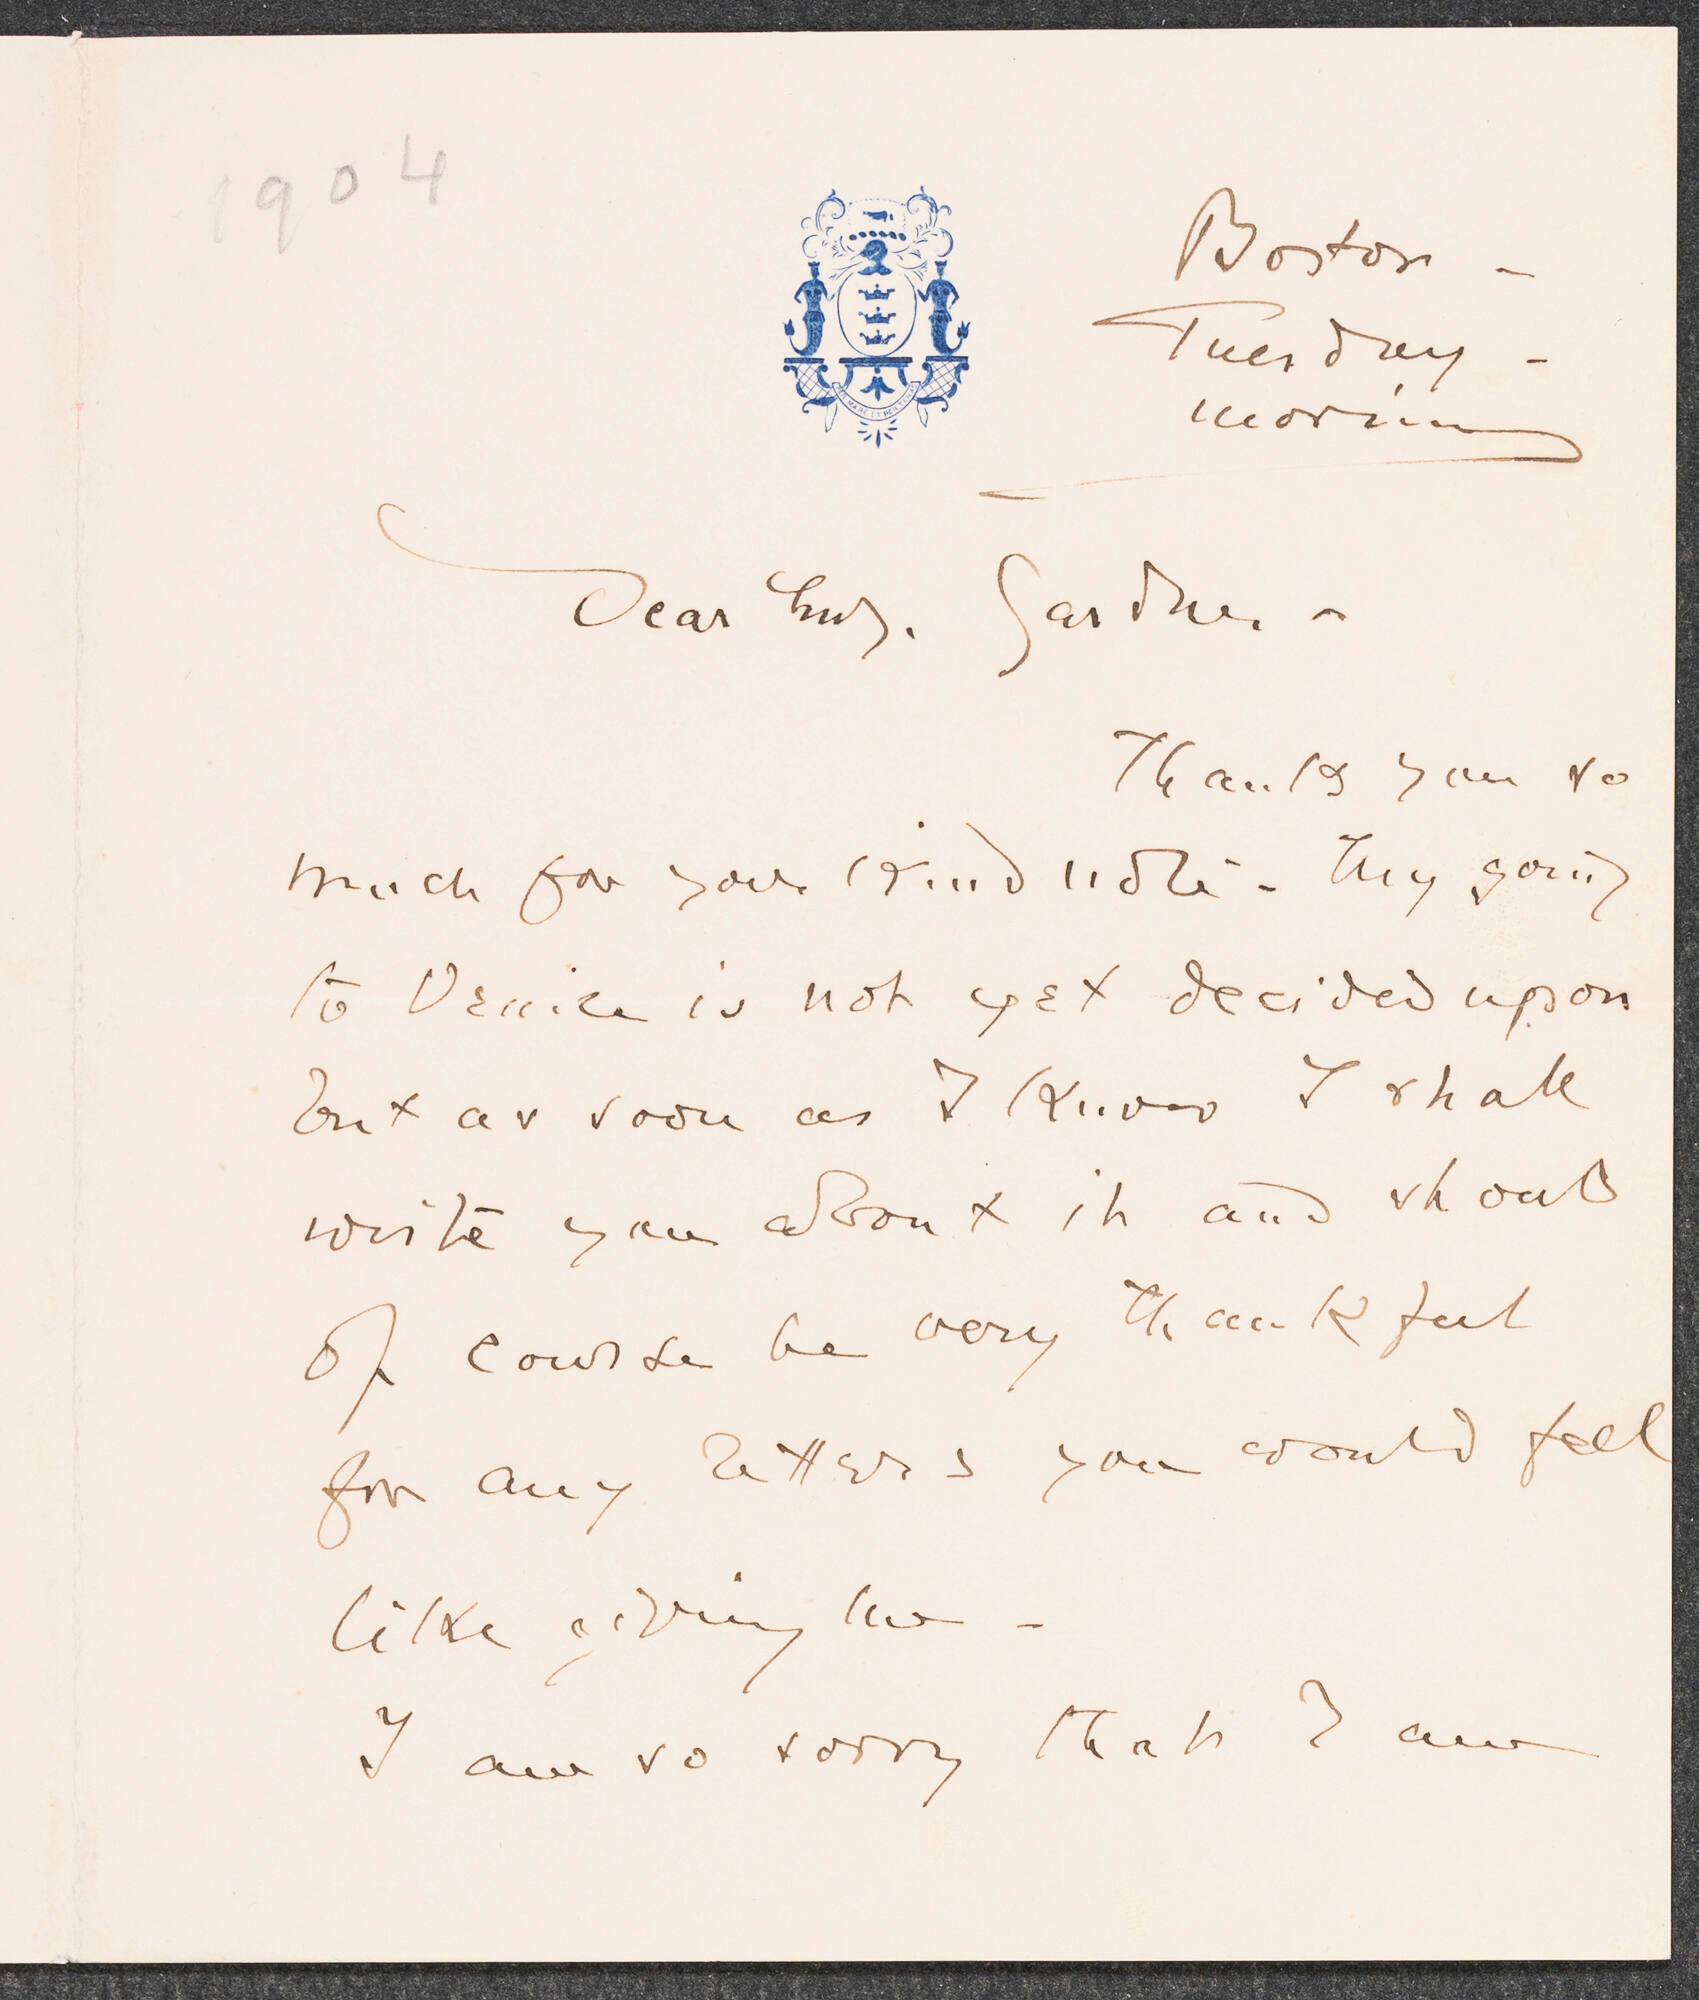 1904
Boston -
Tuesday -
morning
Dear Mrs. Gardner -
Thank you so
much for your kind note - My going
to Venice is not yet decided upon
but as soon as I know I shall
write you about it and should
of course be very thankful
for any letters you would feel
like giving me -
I am so sorry that I am